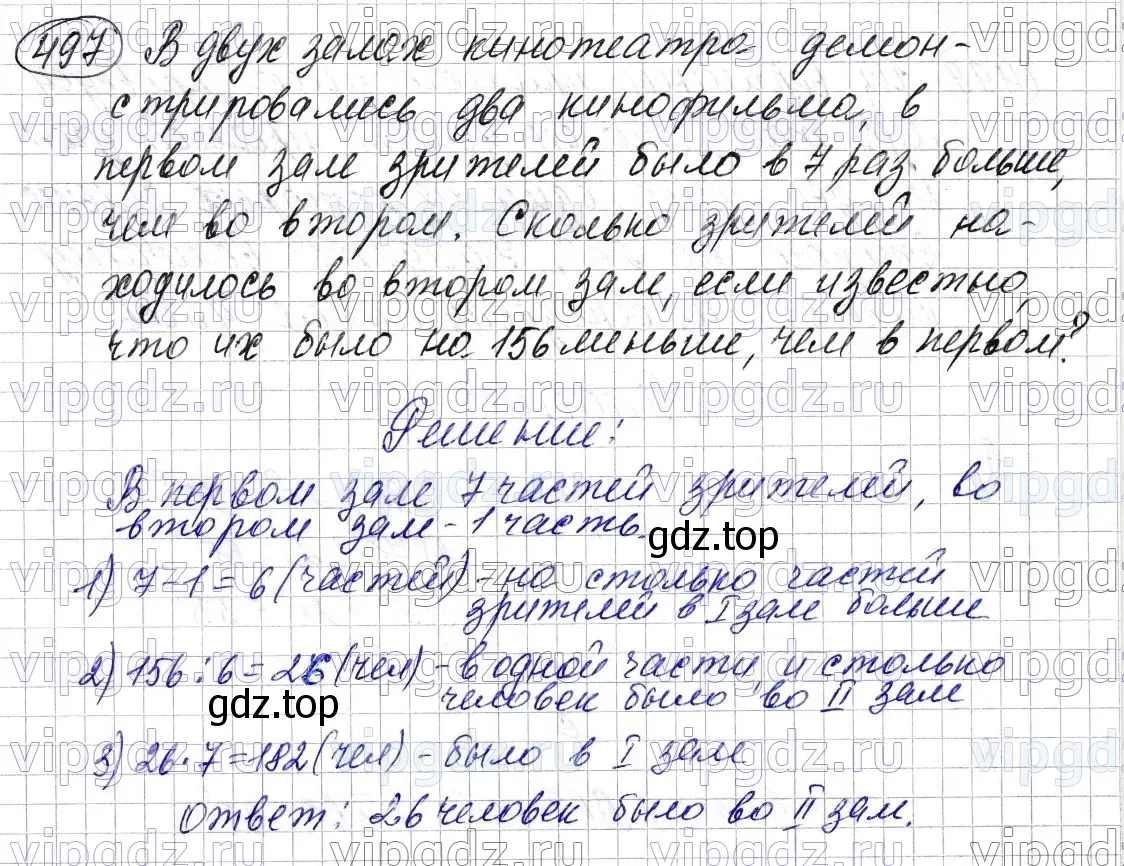 497 В двух залах кинотеатра демон-
стрировались два кинофильма, в
первом зале зрителей было в 7 раз больше,
чем во втором. Сколько зрителей на-
ходилось во втором зале, если известно,
что их было на 156 меньше, чем в первом?
Решение:
В первом зале 7 частей зрителей, во
втором зале - 1 часть.
gdz.top
1) 7-1=6 (частей) - на столько частей
зрителей в I зале больше
2) 156:6=26 (чел) - в одной части и столько
человек было во II зале
gdz.top
3) 26·7=182 (чел) - было в I зале
Ответ: 26 человек было во II зале.
vipgdz.ru